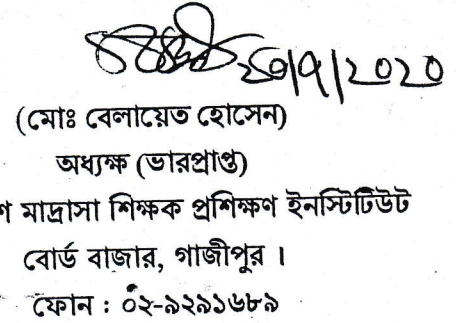 ২০/৭/২০২০
(মোঃ বেলায়েত হোসেন)
অধ্যক্ষ (ভারপ্রাপ্ত)
মাদ্রাসা শিক্ষক প্রশিক্ষণ ইনস্টিটিউট
বোর্ড বাজার, গাজীপুর ।
ফোন : ০২-৯২৯১৬৮৯